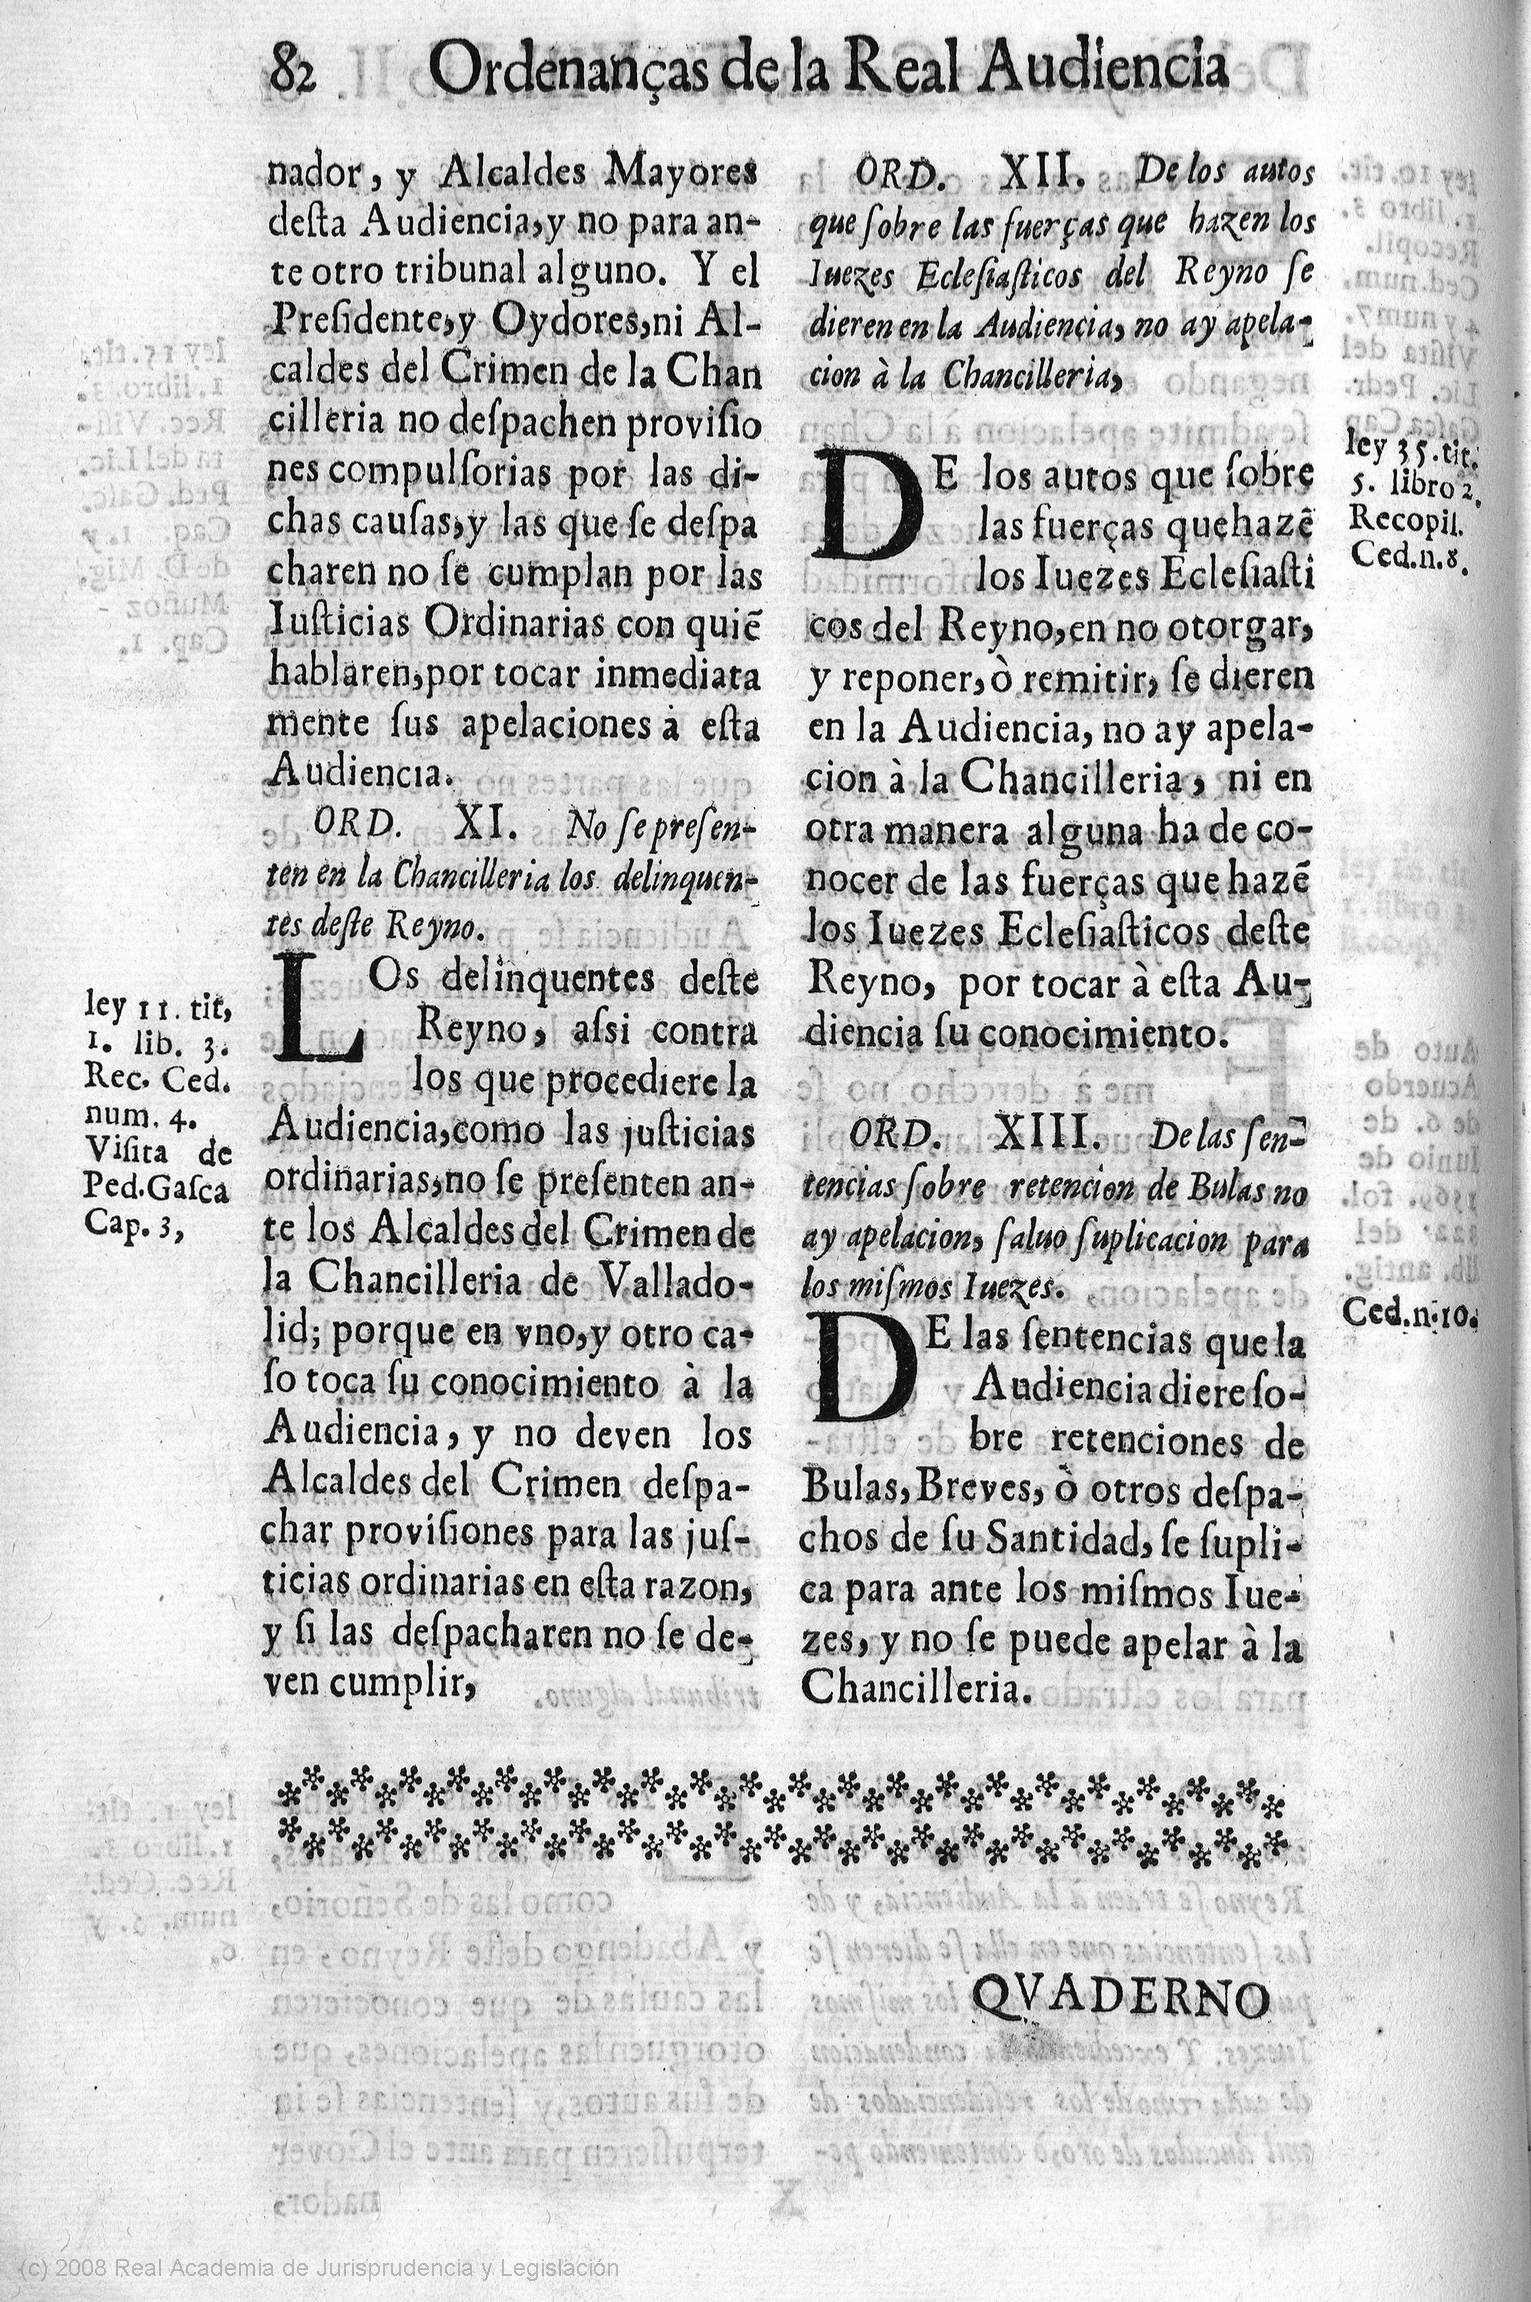 82 Ordenanças de la Real Audiencia
nador, y Alcaldes Mayores
desta Audiencia, y no para an-
te otro tribunal alguno. Y el
Presidente, y Oydores, ni Al-
caldes del Crimen de la Chan
cilleria no despachen provisio
nes compulsorias por las di-
chas causas, y las que se despa
charen no se cumplan por las
Iusticias Ordinarias con quiẽ
hablaren, por tocar inmediata
mente sus apelaciones à esta
Audiencia.
ORD. XI. No se presen-
ten en la Chancilleria los delinquen-
tes deste Reyno.
LOs delinquentes deste
Reyno, assi contra
los que procediere la
Audiencia, como las justicias
ordinarias, no se presenten an-
te los Alcaldes del Crimen de
la Chancilleria de Vallado-
lid; porque en vno, y otro ca-
so toca su conocimiento à la
Audiencia, y no deven los
Alcaldes del Crimen despa-
char provisiones para las jus-
ticias ordinarias en esta razon,
y si las despacharen no se de-
ven cumplir,
ley 11. tit,
1. lib. 3.
Rec. Ced.
num. 4.
Visita de
Ped. Gasca
Cap. 3,
ORD. XII. De los autos
que sobre las fuerças que hazen los
Iuezes Eclesiasticos del Reyno se
dieren en la Audiencia, no ay apela-
cion à la Chancilleria,
DE los autos que sobre
las fuerças que hazẽ
los Iuezes Eclesiasti
cos del Reyno, en no otorgar,
y reponer, ò remitir, se dieren
en la Audiencia, no ay apela-
cion à la Chancilleria, ni en
otra manera alguna ha de co-
nocer de las fuerças que hazẽ
los Iuezes Eclesiasticos deste
Reyno, por tocar à esta Au-
diencia su conocimiento.
ley 35. tit.
5. libro 2.
Recopil.
Ced. n. 8.
ORD. XIII. De las sen-
tencias sobre retencion de Bulas no
ay apelacion, saluo suplicacion para
los mismos Iuezes.
DE las sentencias que la
Audiencia diere so-
bre retenciones de
Bulas, Breves, ò otros despa-
chos de su Santidad, se supli-
ca para ante los mismos Iue-
zes, y no se puede apelar à la
Chancilleria.
Ced. n. 10.
QVADERNO
(c) 2008 Real Academia de Jurisprudencia y Legislación